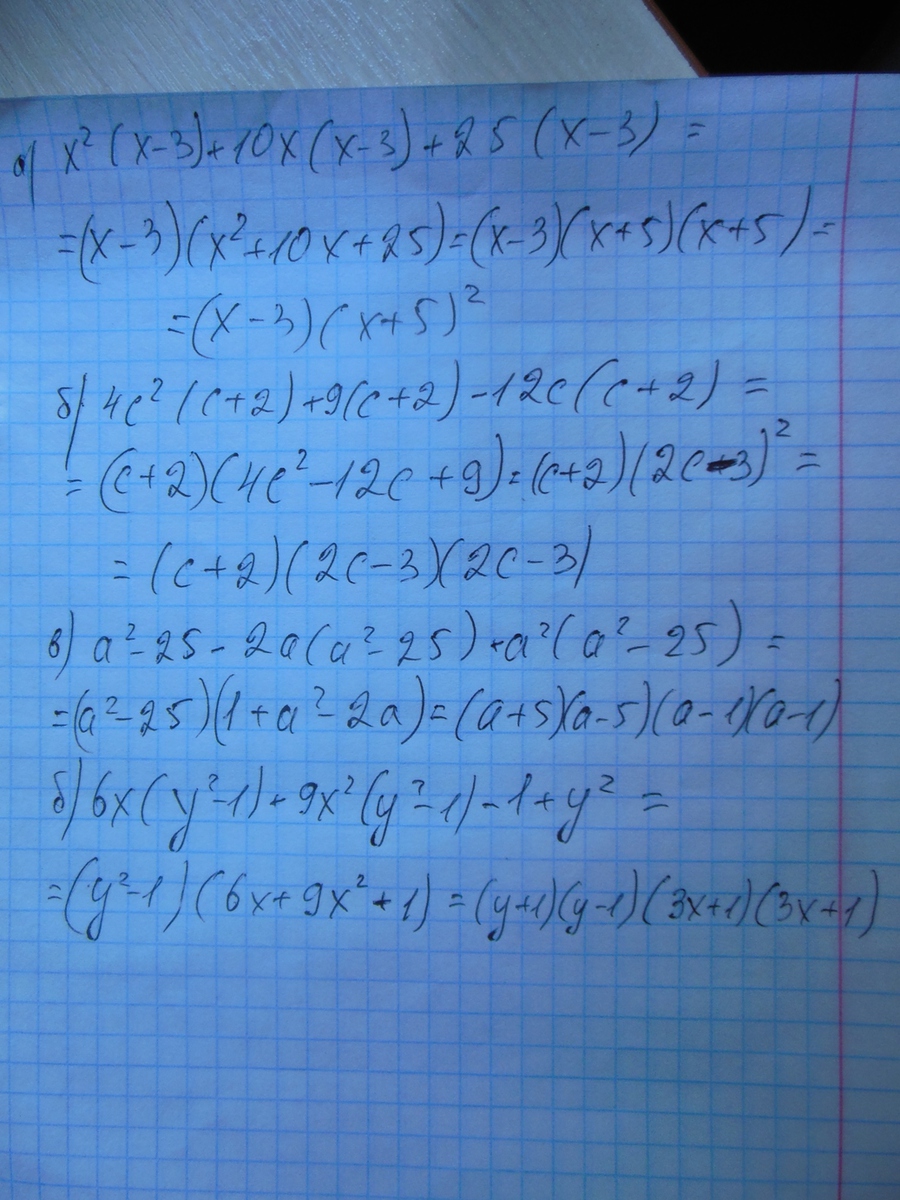 а) x² (x-3)+10x(x-3)+25(x-3) =
=(x-3)(x²+10x+25)=(x-3)(x+5)(x+5)=
=(x-3)(x+5)²
б) 4c² (c+2)+9(c+2)-12c(c+2) =
= (c+2)(4c²-12c+9)=(c+2)(2c-3)² =
= (c+2)(2c-3)(2c-3)
в) a²-25-2a(a²-25)+a²(a²-25) =
=(a²-25)(1+a²-2a)=(a+5)(a-5)(a-1)(a-1)
б) 6x(y²-1)+9x²(y²-1)-1+y² =
=(y²-1)(6x+9x²+1)=(y+1)(y-1)(3x+1)(3x+1)